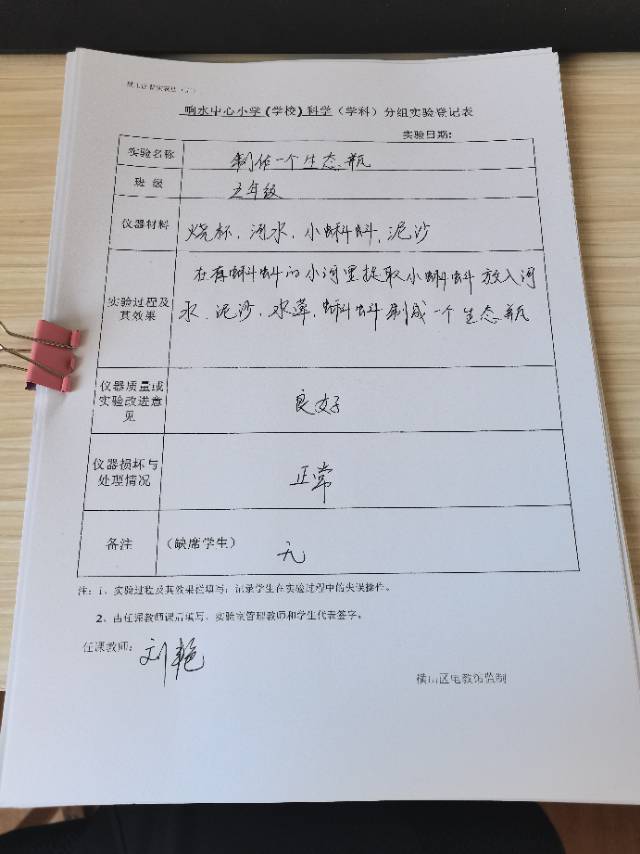 响水中心小学(学校)科学(学科)分组实验登记表
实验日期:
实验名称 制作一个生态瓶
班 级 五年级
仪器材料 烧杯、河水、小蝌蚪、泥沙
实验过程及其效果 在有蝌蚪的小河里提取小蝌蚪放入河
水、泥沙、水草、蝌蚪制成一个生态瓶
仪器质量或
实验改进意
见
良好
仪器损坏与
处理情况
正常
备注 (缺席学生) 无
注:1、实验过程及其效果栏填写:记录学生在实验过程中的失误操作。
2、由任课教师课后填写,实验室管理教师和学生代表签字。
任课教师: 刘艳
横山区电教馆监制